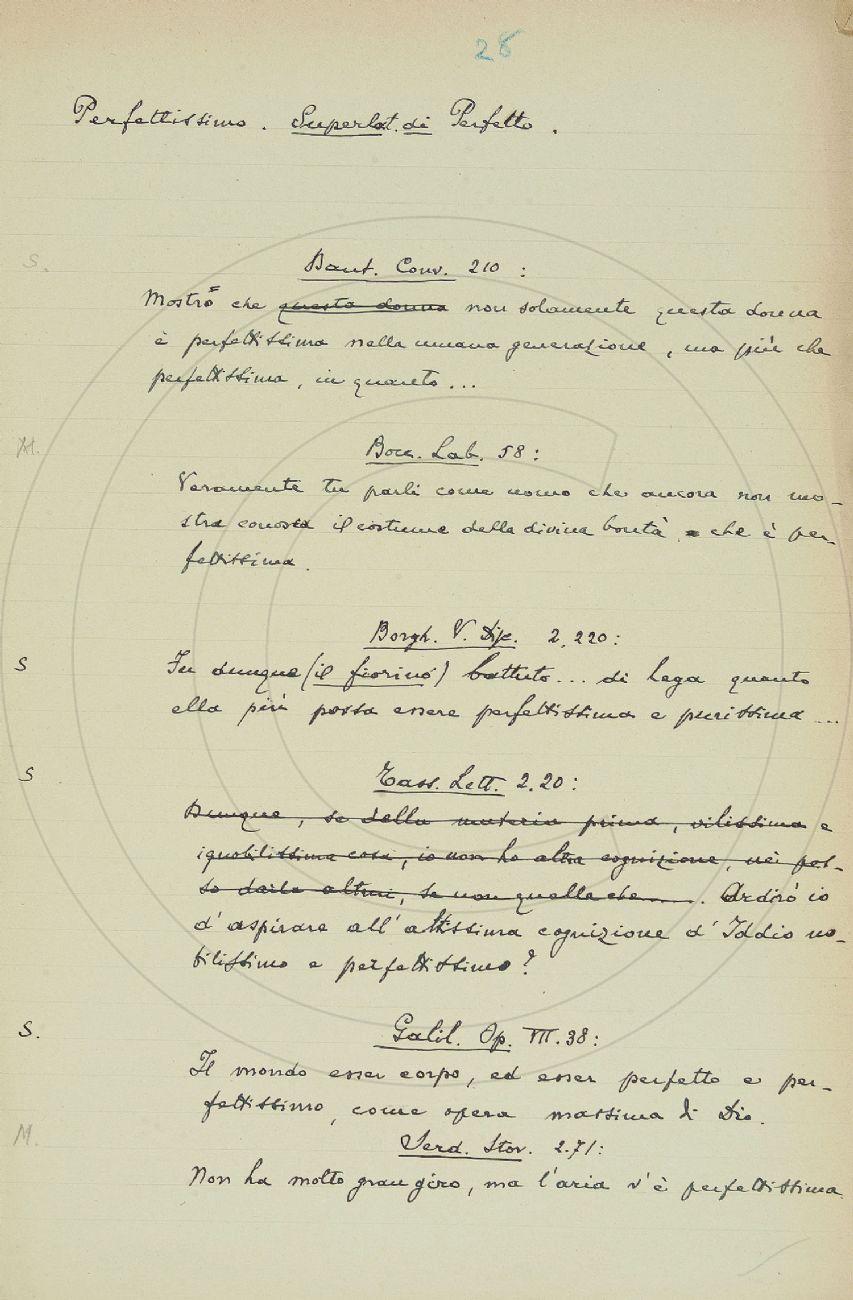 28
Perfettissimo. Superlat. di Perfetto.
S. Dant. Conv. 210:
Mostrò che questa donna non solamente questa donna
è perfettissima nella umana generazione, ma più che
perfettissima, in quanto...
M. Bocc. Lab. 58:
Veramente tu parli come uomo che ancora non mo-
stra conosca il costume della divina bontà che è per-
fettissima.
Borgh. V. Disc. 2.220:
S Fu dunque (il fiorino) battuto... di lega quanto
ella più possa essere perfettissima e purissima...
S Tass. Lett. 2.20:
Dunque, se della materia prima, vilissima e
ignobilissima cosa, io non ho altra cognizione, nè pos-
so darla altrui, se non quella che..... Ardirò io
d'aspirare all'altissima cognizione d'Iddio no-
bilissimo e perfettissimo?
S. Galil. Op. VII. 38:
Il mondo esser corpo, ed esser perfetto e per-
fettissimo, come opera massima di Dio.
M. Serd. Stor. 2.71:
Non ha molto gran giro, ma l'aria v'è perfettissima